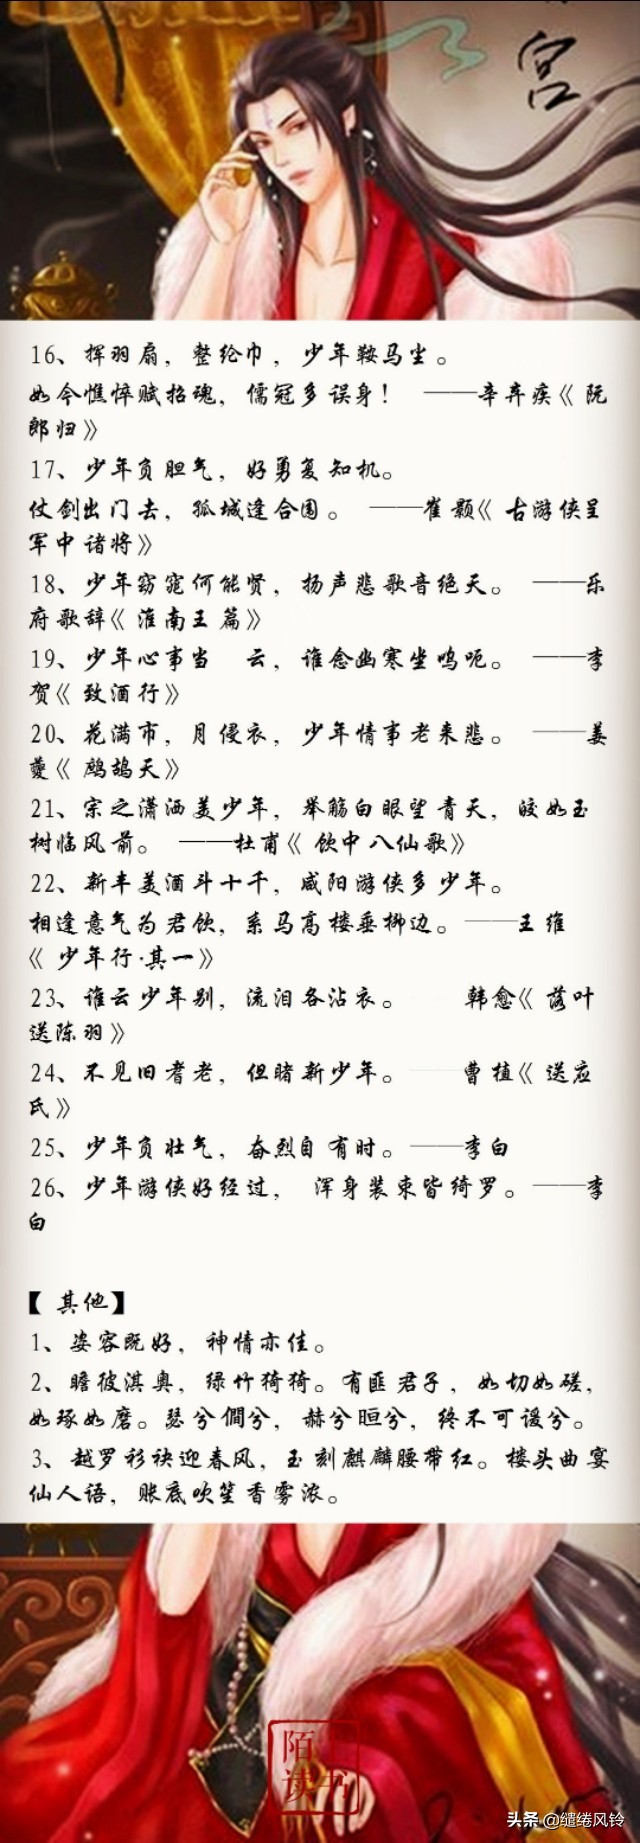 宫
16、挥羽扇，整纶巾，少年鞍马尘。
如今憔悴赋招魂，儒冠多误身！ ——辛弃疾《阮
郎归》
17、少年负胆气，好勇复知机。
仗剑出门去，孤城逢合围。 ——崔颢《古游侠呈
军中诸将》
18、少年窈窕何能贤，扬声悲歌音绝天。 ——乐
府歌辞《淮南王篇》
19、少年心事当 云，谁念幽寒坐呜呃。 ——李
贺《致酒行》
20、花满市，月侵衣，少年情事老来悲。 ——姜
夔《鹧鸪天》
21、宗之潇洒美少年，举觞白眼望青天，皎如玉
树临风前。 ——杜甫《饮中八仙歌》
22、新丰美酒斗十千，咸阳游侠多少年。
相逢意气为君饮，系马高楼垂柳边。——王维
《少年行·其一》
23、谁云少年别，流泪各沾衣。 韩愈《落叶
送陈羽》
24、不见旧耆老，但睹新少年。 曹植《送应
氏》
25、少年负壮气，奋烈自有时。——李白
26、少年游侠好经过， 浑身装束皆绮罗。——李
白
【其他】
1、姿容既好，神情亦佳。
2、瞻彼淇奥，绿竹猗猗。有匪君子，如切如磋，
如琢如磨。瑟兮僩兮，赫兮晅兮，终不可谖兮。
3、越罗衫袂迎春风，玉刻麒麟腰带红。楼头曲宴
仙人语，账底吹笙香雾浓。
陌上
读书
头条 @缱绻风铃